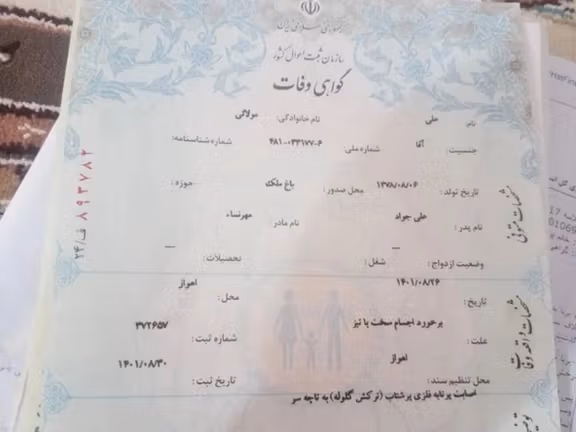 جمهوری اسلامی ایران
سازمان ثبت احوال کشور
گواهی وفات
نام: علی نام خانوادگی: مولائی
جنسیت: آقا شماره ملی: ۴۸۱-۰۰۳۳۱۷۷-۶ شماره شناسنامه:
تاریخ تولد: ۱۳۷۸/۰۸/۰۶ محل صدور: باغ ملک حوزه:
نام پدر: علی جبراد نام مادر: مهرنساء
وضعیت ازدواج: — شغل: تحصیلات: —
تاریخ: ۱۴۰۱/۰۸/۲۶ محل: اهواز
علت: برخورد اجسام سخت یا تیز شماره ثبت: ۳۷۲۶۵۷
محل تنظیم سند: اهواز تاریخ ثبت: ۱۴۰۱/۰۸/۳۰
اصابت پرتابه فلزی پرشتاب (ترکش گلوله) به ناحیه سر
مشخصات متوفی
مشخصات واقعه وفات
ف/۲۴ ۸۹۳۷۸۲